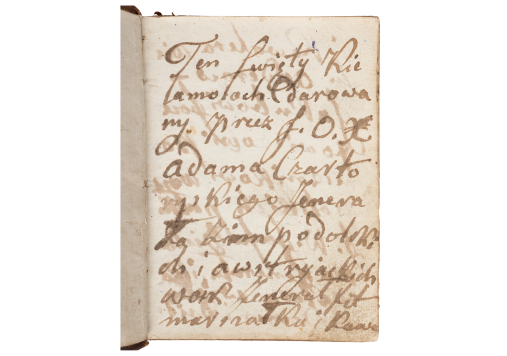 Ten święty Kie
lamoloch Edarowa
ny przez J. O. X
adama Czarto
ryskiego Jenera
ła ziem podolski
ch i awstryackich
woysk Jenerał
marszałka i Kawa